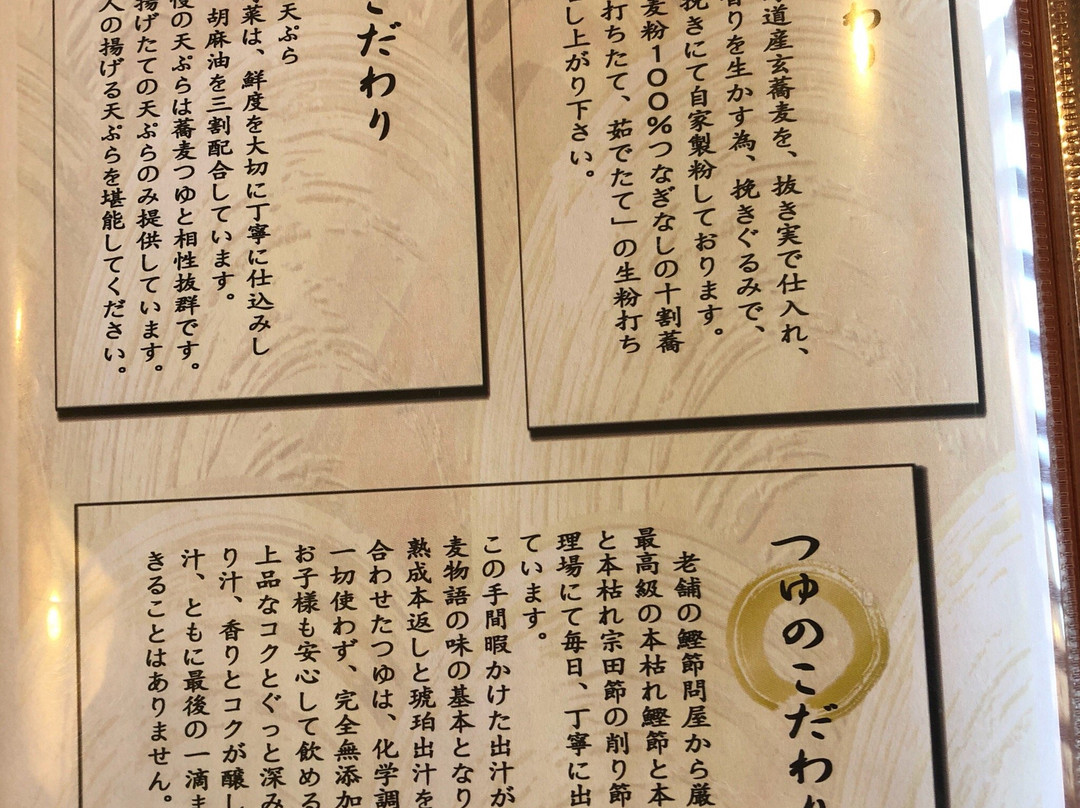 わり
道産玄蕎麦を、抜き実で仕入れ、
香りを生かす為、挽きぐるみで、
挽きにて自家製粉しております。
麦粉100％つなぎなしの十割蕎
打ちたて、茹でたて」の生粉打ち
し上がり下さい。
こだわり
天ぷら
菜は、鮮度を大切に丁寧に仕込みし
胡麻油を三割配合しています。
の天ぷらは蕎麦つゆと相性抜群です。
揚げたての天ぷらのみ提供しています。
人の揚げる天ぷらを堪能してください。
つゆのこだわり
老舗の鰹節問屋から厳
最高級の本枯れ鰹節と本
と本枯れ宗田節の削り節
理場にて毎日、丁寧に出
ています。
この手間暇かけた出汁が
麦物語の味の基本となり
熟成本返しと琥珀出汁を
合わせたつゆは、化学調
一切使わず、完全無添加
お子様も安心して飲める
上品なコクとぐっと深み
り汁、香りとコクが醸し
汁、ともに最後の一滴ま
きることはありません。